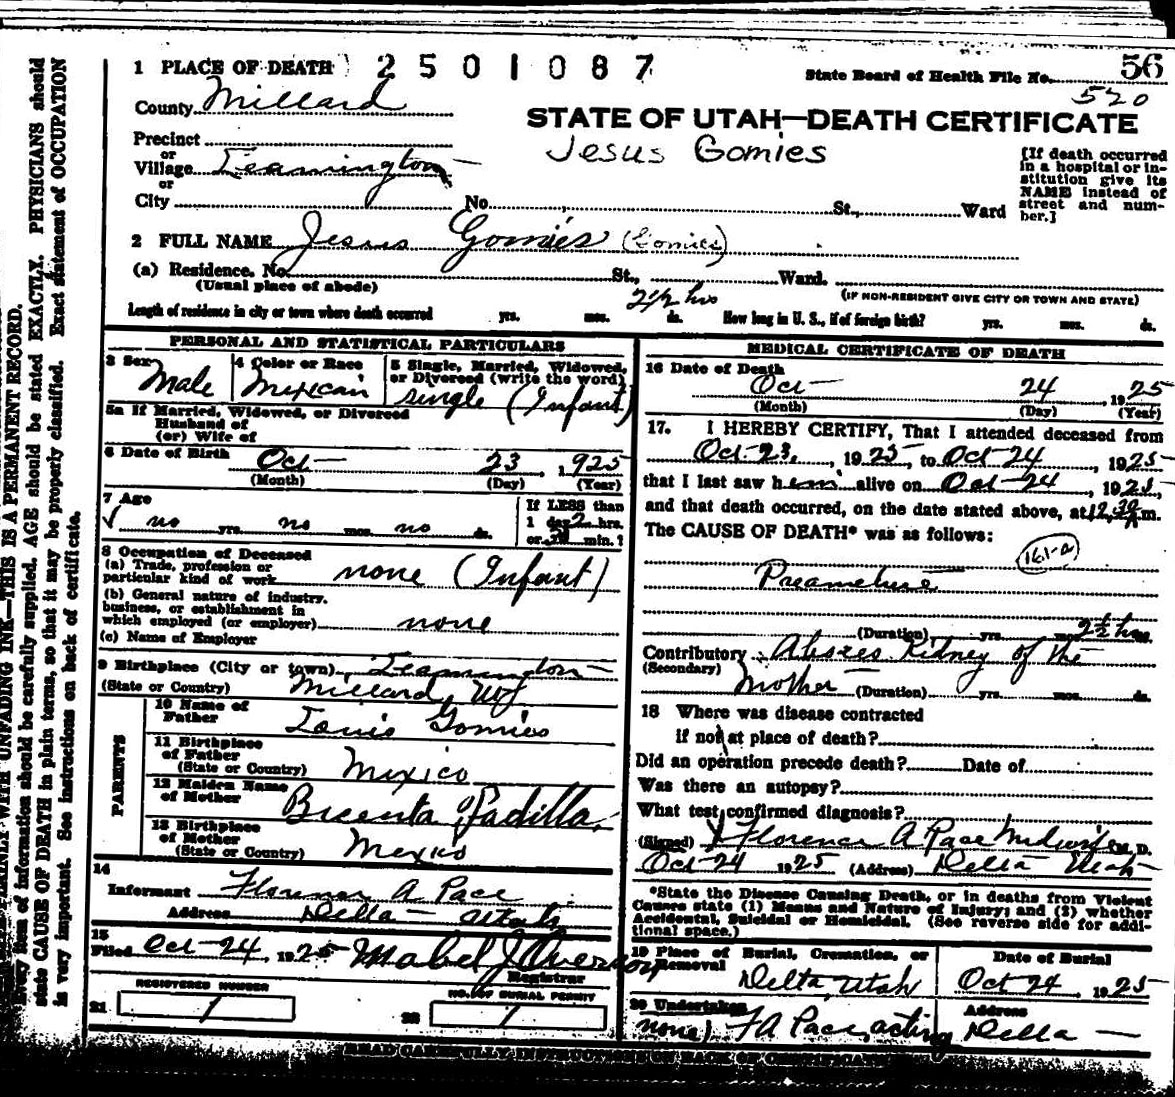 1 PLACE OF DEATH 2501087
State Board of Health File No. 56
520
County Millard
STATE OF UTAH—DEATH CERTIFICATE
Jesus Gomies
Precinct
or
Village Leamington
or
City No. St., Ward
[If death occurred
in a hospital or in-
stitution give its
NAME instead of
street and num-
ber.]
2 FULL NAME Jesus Gomies (Gomies)
(a) Residence. No. St., Ward.
(Usual place of abode)
(IF NON-RESIDENT GIVE CITY OR TOWN AND STATE)
2 1/2 hrs
Length of residence in city or town where death occurred yrs. mos. ds. How long in U. S., if of foreign birth? yrs. mos. ds.
PERSONAL AND STATISTICAL PARTICULARS
3 Sex
Male
4 Color or Race
Mexican
5 Single, Married, Widowed,
or Divorced (write the word)
single (Infant)
5a If Married, Widowed, or Divorced
Husband of
(or) Wife of
6 Date of Birth Oct 23, 1925
(Month) (Day) (Year)
7 Age
no yrs. no mos. no ds.
If LESS than
1 day 2 hrs.
or min.?
8 Occupation of Deceased
(a) Trade, profession or
particular kind of work none (Infant)
(b) General nature of industry,
business, or establishment in
which employed (or employer) none
(c) Name of Employer
9 Birthplace (City or town) Leamington
(State or Country) Millard,
PARENTS
10 Name of
Father Louis Gomies
11 Birthplace
of Father
(State or Country) Mexico
12 Maiden Name
of Mother Bicenta Padilla
13 Birthplace
of Mother
(State or Country) Mexico
14
Informant Florence A Pace
Address Delta Utah
15
Filed Oct 24, 1925 Mabel J Overson
Registrar
REGISTERED NUMBER
21 1
NO. OF BURIAL PERMIT
22 1
MEDICAL CERTIFICATE OF DEATH
16 Date of Death
Oct 24, 1925
(Month) (Day) (Year)
17. I HEREBY CERTIFY, That I attended deceased from
Oct 23, 1925, to Oct 24, 1925
that I last saw him alive on Oct 24, 1925,
and that death occurred, on the date stated above, at 12,30 A m.
The CAUSE OF DEATH* was as follows:
161-a
Preameture
(Duration) yrs. mos. 2 1/2 hrs
Contributory Abszes Kidney of the
(Secondary)
Mother (Duration) yrs. mos. ds.
18 Where was disease contracted
if not at place of death?
Did an operation precede death? Date of
Was there an autopsy?
What test confirmed diagnosis?
(Signed) X Florence A Pace Midwife M. D.
Oct 24 1925 (Address) Delta Utah
*State the Disease Causing Death, or in deaths from Violent
Causes state (1) Means and Nature of Injury; and (2) whether
Accidental, Suicidal or Homicidal. (See reverse side for addi-
tional space.)
19 Place of Burial, Cremation, or
Removal
Delta, Utah
Date of Burial
Oct 24, 1925
20 Undertaker
none) F A Pace, acting
Address
Delta
READ CAREFULLY INSTRUCTIONS ON BACK OF CERTIFICATE
PLAINLY WITH UNFADING INK—THIS IS A PERMANENT RECORD.
Every item of information should be carefully supplied. AGE should be stated EXACTLY. PHYSICIANS should
state CAUSE OF DEATH in plain terms, so that it may be properly classified. Exact statement of OCCUPATION
is very important. See instructions on back of certificate.